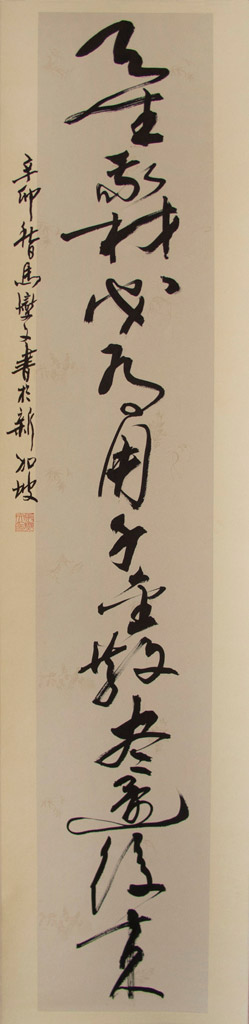 天生我材必为用千金散尽還復来
辛卯馬文書於新加坡